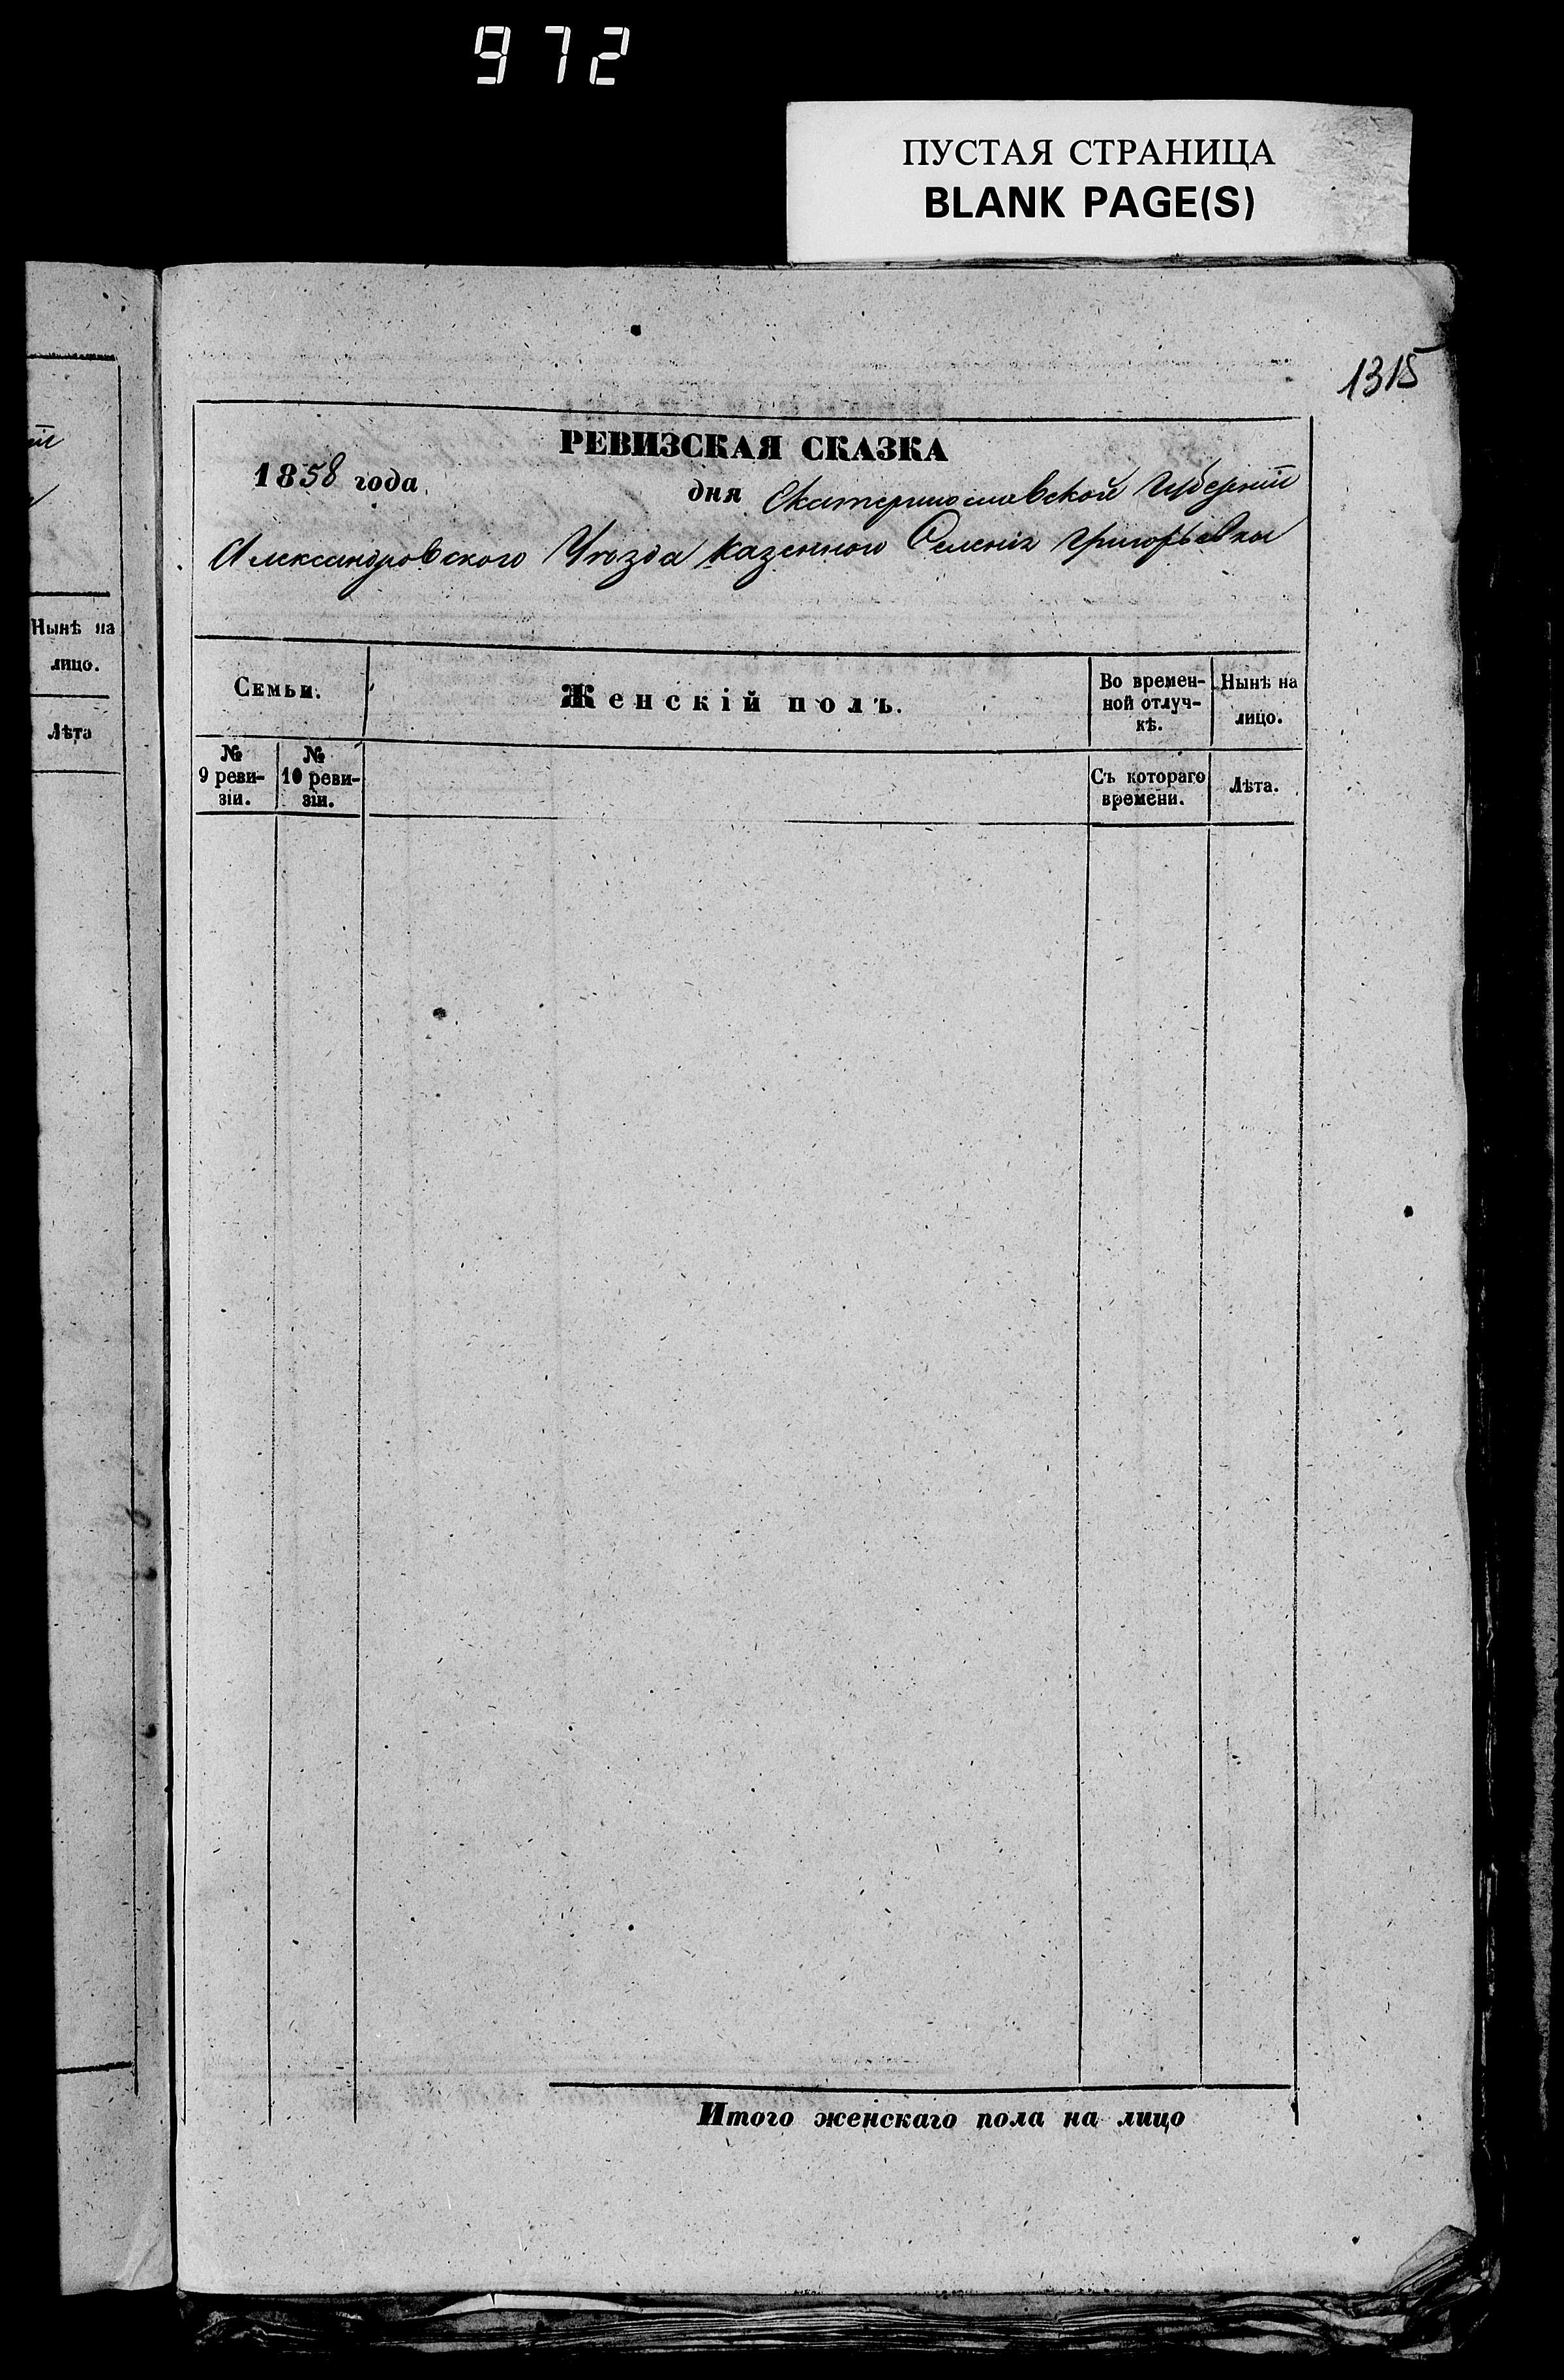 972
ПУСТАЯ СТРАНИЦА
BLANK PAGE(S)
1315
РЕВИЗСКАЯ СКАЗКА
1858 года дня Екатеринославской Губерніи
Александровского Уѣзда казенного Селенія Григорьевки
Нынѣ на
лицо.
Лѣта
Семьи.
Женскій полъ.
Во времен-
ной отлуч-
кѣ.
Нынѣ на
лицо.
№
9 реви-
зіи.
№
10 реви-
зіи.
Съ котораго
времени.
Лѣта.
Итого женскаго пола на лицо